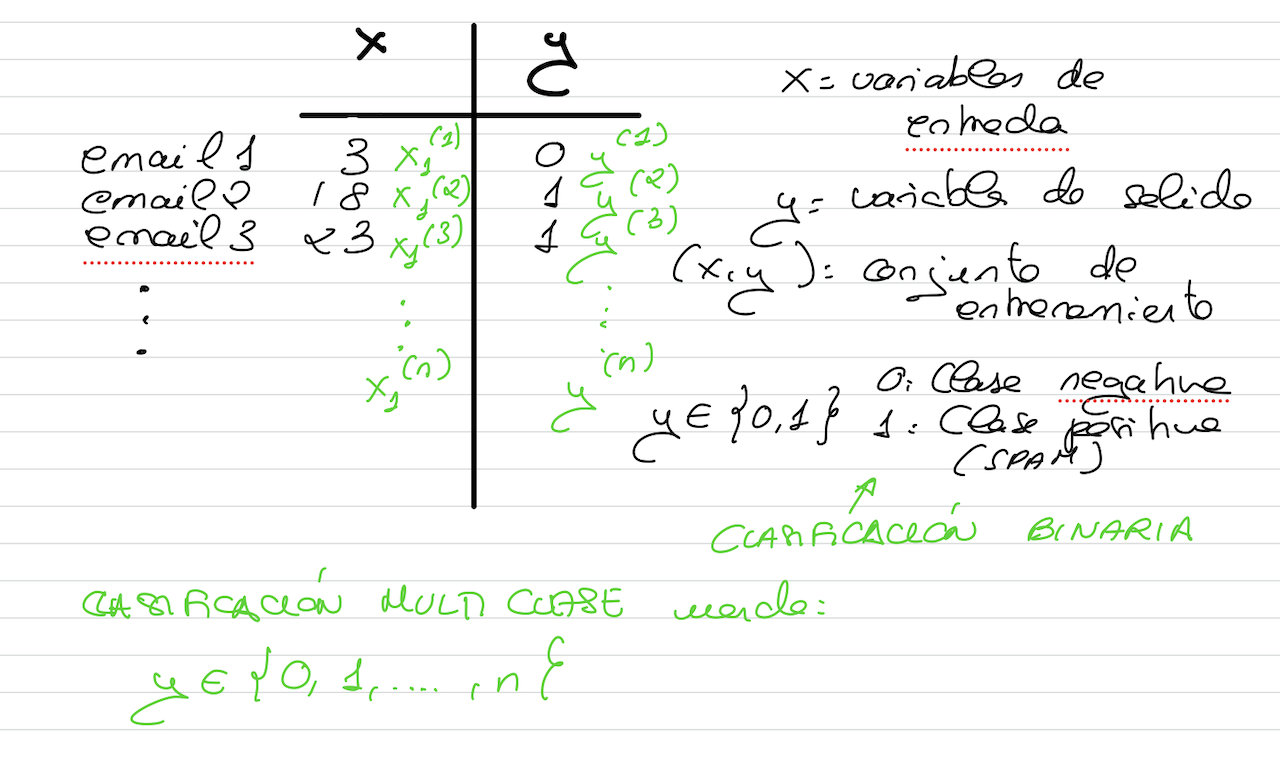 x y
email 1 3 x₁⁽¹⁾ 0 y⁽¹⁾
email 2 18 x₁⁽²⁾ 1 y⁽²⁾
email 3 23 x₁⁽³⁾ 1 y⁽³⁾
x₁⁽ⁿ⁾ y⁽ⁿ⁾
x = variables de
entrada
y = variable de salida
(x,y) = conjunto de
entrenamiento
y ∈ {0,1} 0: Clase negativa
1: Clase positiva
(SPAM)
CLASIFICACIÓN BINARIA
CLASIFICACIÓN MULTICLASE
y ∈ {0, 1, ....., n}